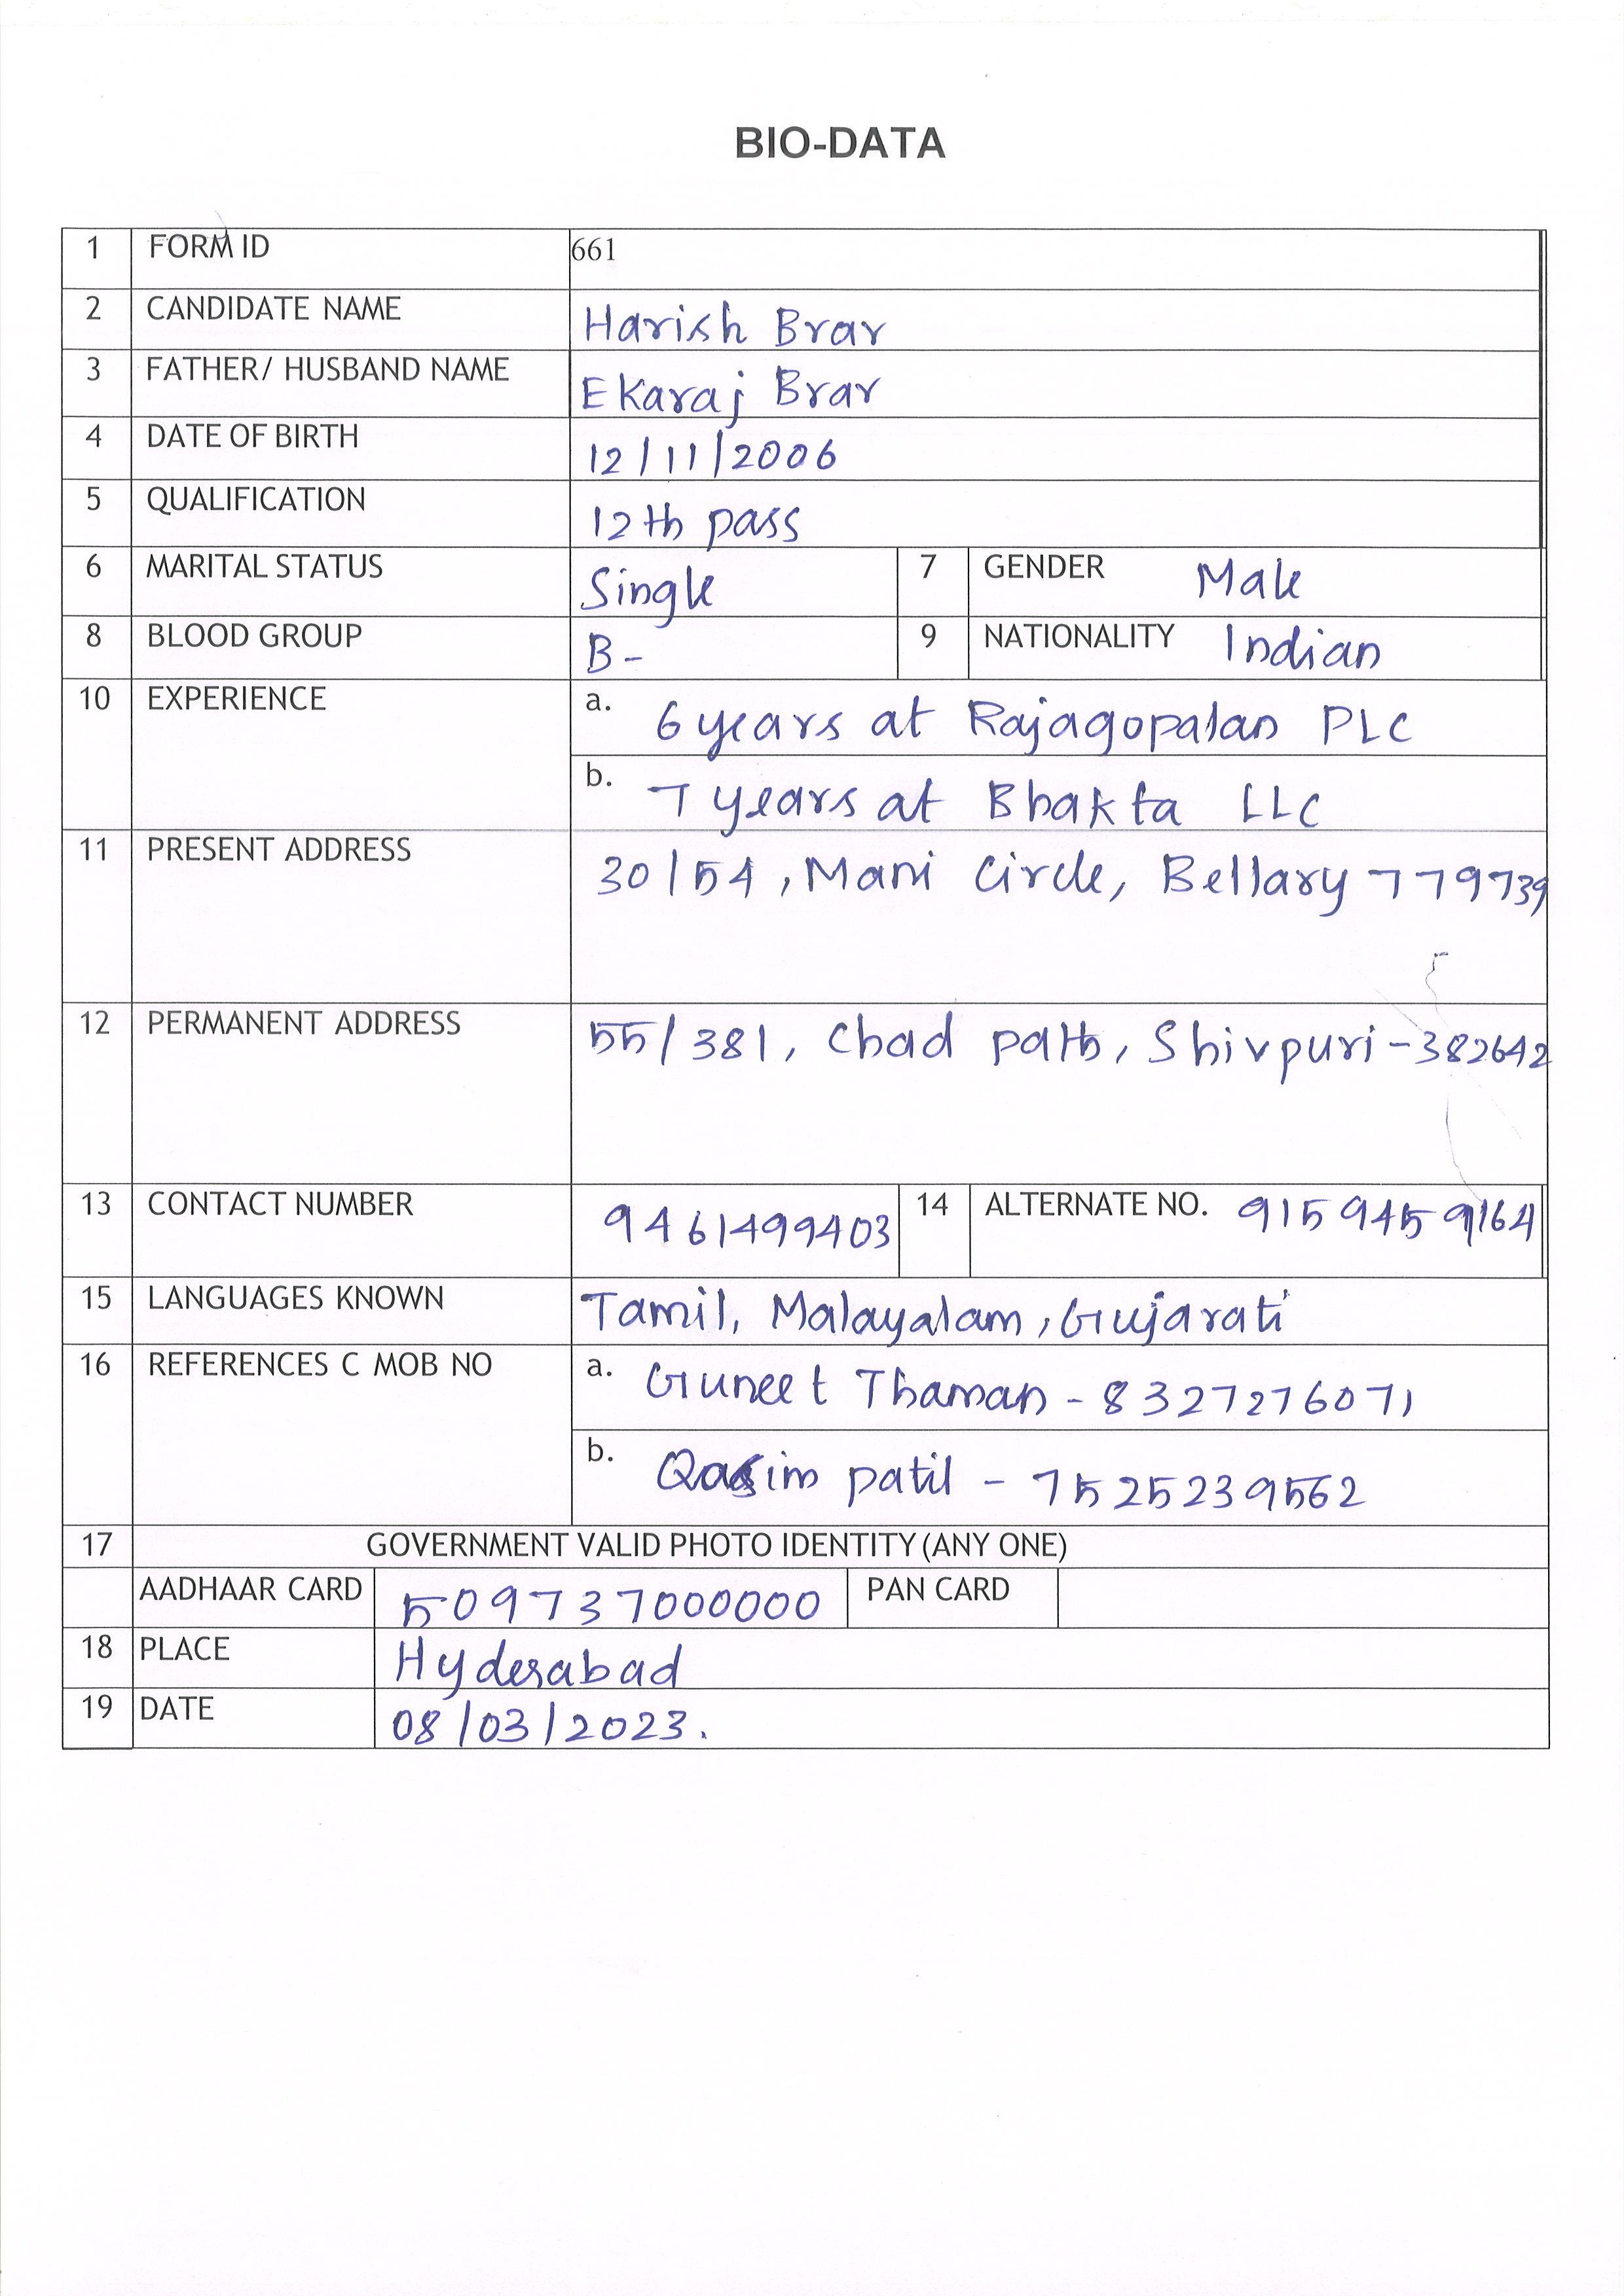 BIO-DATA
1 FORM ID 661
2 CANDIDATE NAME Harish Brar
3 FATHER/ HUSBAND NAME Ekaraj Brar
4 DATE OF BIRTH 12/11/2006
5 QUALIFICATION 12th pass
6 MARITAL STATUS Single 7 GENDER Male
8 BLOOD GROUP B- 9 NATIONALITY Indian
10 EXPERIENCE a. 6 years at Rajagopalan PLC
b. 7 years at Bhakta LLC
11 PRESENT ADDRESS 30/54, Mani Circle, Bellary 779739
12 PERMANENT ADDRESS 55/381, Chad path, Shivpuri-382642
13 CONTACT NUMBER 9461499403 14 ALTERNATE NO. 9159459164
15 LANGUAGES KNOWN Tamil, Malayalam, Gujarati
16 REFERENCES C MOB NO a. Guneet Thaman - 8327276071
b. Qasim patil - 7525239562
17 GOVERNMENT VALID PHOTO IDENTITY (ANY ONE)
AADHAAR CARD 509737000000 PAN CARD
18 PLACE Hyderabad
19 DATE 08/03/2023.